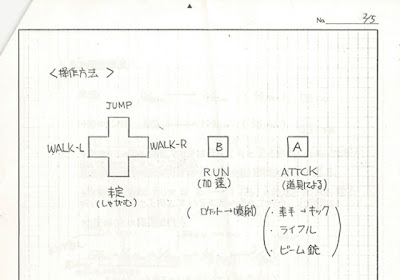 No. 2/5
<操作方法>
JUMP
WALK-L
WALK-R
未定
(しゃがむ)
B
RUN
(加速)
(ロケット→噴射)
A
ATTCK
(道具による)
・素手→キック
・ライフル
・ビーム銃